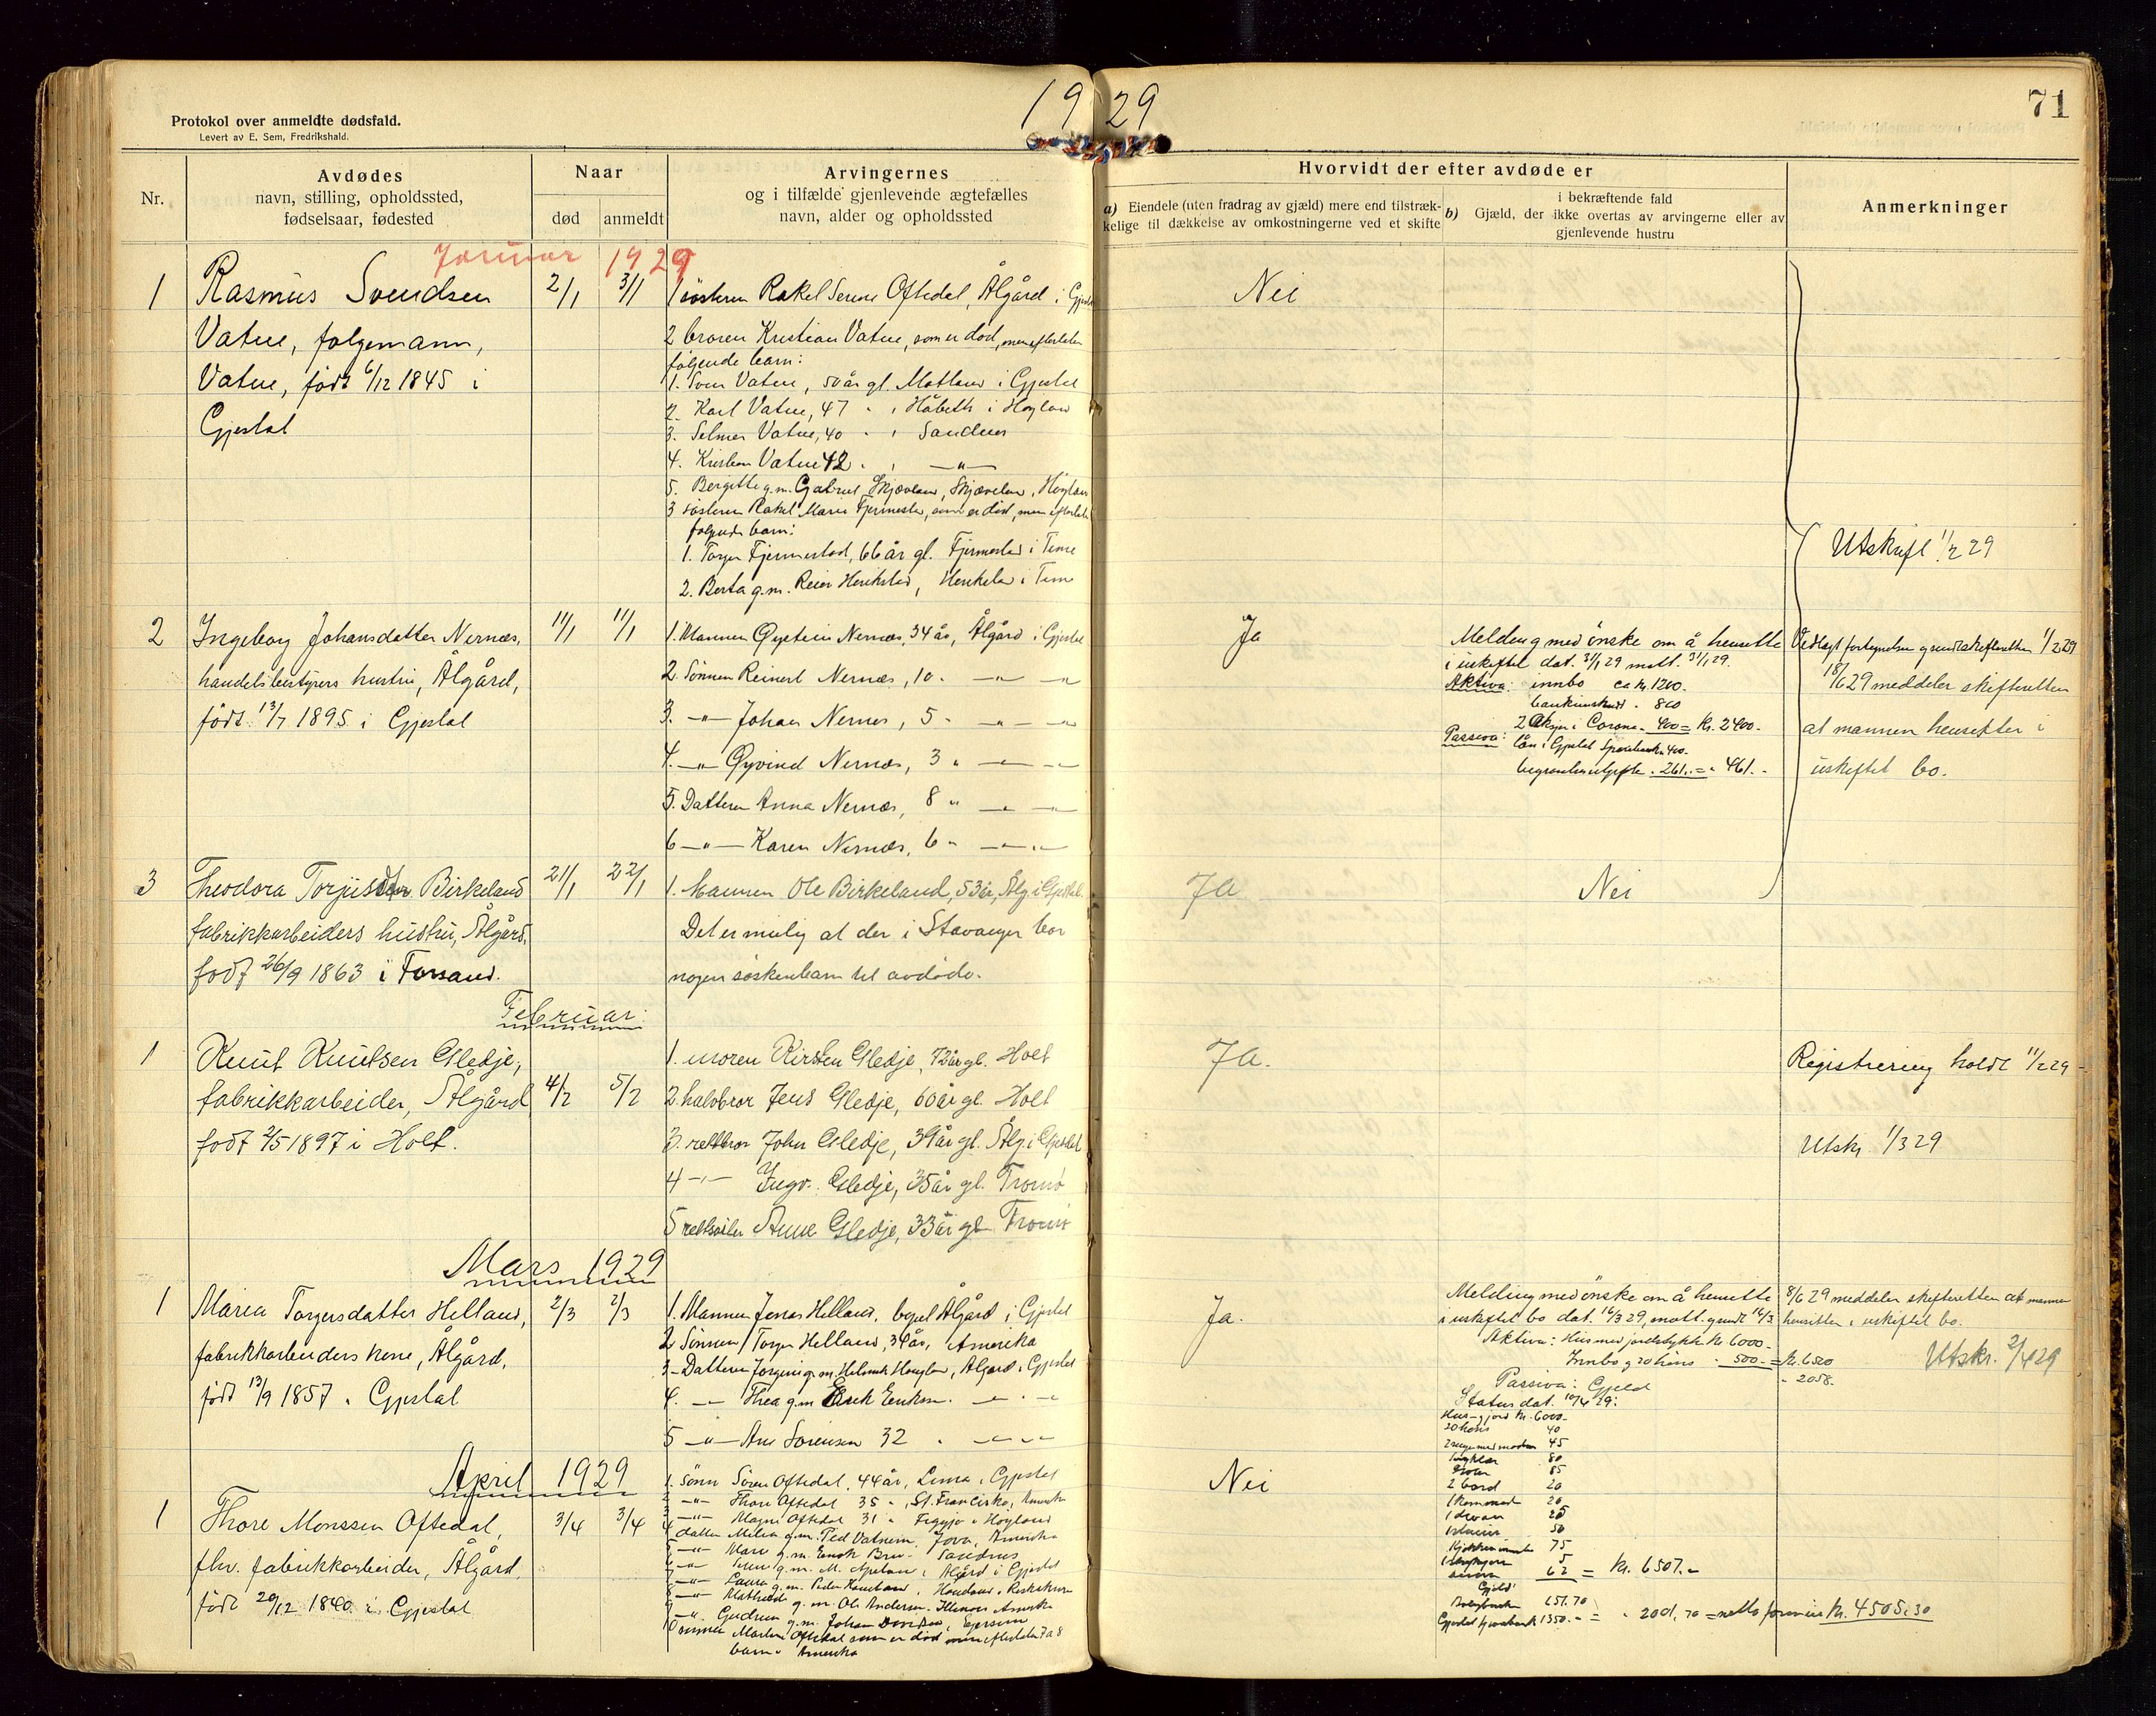 1929
71
Protokol over anmeldte dødsfald.
Levert av E. Sem, Fredrikshald.
Nr.
Avdødes
navn, stilling, opholdssted,
fødselsaar, fødested
Naar
død
anmeldt
Arvingernes
og i tilfælde gjenlevende ægtefælles
navn, alder og opholdssted
Hvorvidt der efter avdøde er
a) Eiendele (uten fradrag av gjæld) mere end tilstræk-
kelige til dækkelse av omkostningerne ved et skifte
i bekræftende fald
b) Gjæld, der ikke overtas av arvingerne eller av
gjenlevende hustru
Anmerkninger
Januar 1929
1
Rasmus Svendsen
Vatne, følgemann,
Vatne, født 6/12 1845 i
Gjestal
2/1
3/1
1 søsteren Rakel Serine Oftedal, Ålgård i Gjestal
2 broren Kristian Vatne, som er død, men efterlater
følgende barn:
1. Sven Vatne, 50 år gl. Matland i Gjestal
2. Karl Vatne, 47 " , Håbeth i Høyland
3. Selmer Vatne, 40 " , Sandnes
4. Kristian Vatne 42 " , — " —
5. Bergitte g.m. Gabriel Skjæveland, Skjæveland, Høyland
3 søsteren Rakel Marie Fjermestad, som er død, men efterlater
følgende barn:
1. Torger Fjermestad, 66 år gl. Fjermestad i Time
2. Berta g.m. Reier i Time
Nei
Utskrift 11/2 29
2
Ingeborg Johansdatter Nernæs,
handelsbestyrers hustru, Ålgård,
født 13/7 1895 i Gjestal
11/1
11/1
1. Mannen Øystein Nernæs, 34 år, Ålgård i Gjestal
2. Sønnen Reinert Nernæs, 10 " — " — "
3. — " — Johan Nernæs, 5 " — " — "
4. — " Øyvind Nernæs, 3 " — " — "
5. Datteren Anna Nernæs, 8 " — " — "
6 — " — Karen Nernæs, 6 " — " —
Ja
Melding med ønske om å hensitte
i uskiftet dat. 31/1 29 mott. 31/1 29.
Aktiva: innbo ca kr. 1200.
bankinnskudd " 800
2 Aksjer i Corona " 400 = Kr. 2400.
Passiva: lån i Gjestal Sparebank 400.
begravelsesutgifter " 261. = " 461. -
Vedlagt fortegnelse sendt skifteretten 1/2 29
18/6 29 meddeler skifteretten
at mannen hensitter i
uskiftet bo.
3
Theodora Torjusdtr. Birkeland
fabrikkarbeiders hustru, Ålgård,
født 26/9 1863 i Forsand.
21/1
22/1
1. Mannen Ole Birkeland, 53 år, Ålg. i Gjestal.
Det er mulig at der i Stavanger bor
nogen søskenbarn til avdøde.
Ja
Nei
Februar:
1
Knut Knutsen Gledje,
fabrikkarbeider, Ålgård
født 2/5 1897 i Holt.
4/2
5/2
1. moren Kirsten Gledje, 72 år gl. Holt
2. halvbror Jens Gledje, 60 år gl. Holt
3. rettbror John Gledje, 39 år gl. Ålg. i Gjestal
4 — " — Ingv. Gledje, 35 år gl. Tromø
5 rettsøster Anne Gledje, 33 år gl. Tromø
Ja.
Registrering holdt 11/2 29 -
Utskr 1/3 29
Mars 1929
1
Maria Torgersdatter Helland,
fabrikkarbeiders kone, Ålgård,
født 13/9 1857 i Gjestal
2/3
2/3
1. Mannen Jonas Helland, bopel Ålgård i Gjestal
2 Sønnen Torger Helland, 39 år, Amerika
3 - Datteren Jorgine g.m. Helland, Ålgård i Gjestal
4. — " — Thea g.m. Erik Eriksen. — " —
5 — " — Ane Sørensen 32 " — " —
Ja.
Melding med ønske om å hensitte
i uskiftet bo dat. 16/3 29, mott. sendt 16/3
Aktiva: Hus med jordstykke kr. 6000 -
Innbo og 20 høns " 500 - = kr. 6500
Passiva: Gjeld " 2058.
Status dat. 10/4 29:
Hus og jord kr. 6000 -
20 høns 40
2 senger med madras 45
80
85
2 bord 20
1 kommode 20
1 divan 25
50
75
5
62 = Kr. 6507. -
Gjeld
651.70
Gjestal Sparebank 1350. - = " 2001,70 = netto formue Kr. 4505,30
8/6 29 meddeler skifteretten at mannen
hensitter i uskiftet bo.
Utskr. 2/4 29
April 1929
1
Thore Monssen Oftedal,
fhv. fabrikkarbeider, Ålgård,
født 20/12 1840 i Gjestal
3/4
3/4
1. sønn Sören Oftedal, 44 år, Lima i Gjestal
2 — " — Thore Oftedal 35 " , St. Francisko, Amerika
3 — " — Magne Oftedal 31 " Figgjo i Høyland
4 datter Milla g.m. Ted Vatnem, Jova, Amerika
5 — " — Mari g.m. Enok Bru - Sandnes
6 — " — g.m. M. Apeland, Ålgård i Gjestal
7 — " — Laura g.m. Peder
8 — " — Mathilde g.m. Ole Andersen, Illinois Amerika
9 — " — Gudrun g.m. Johan Davidsen, Egersund
10 sønnen Martin Oftedal som er død men efterlater 7 a 8
barn i Amerika
Nei